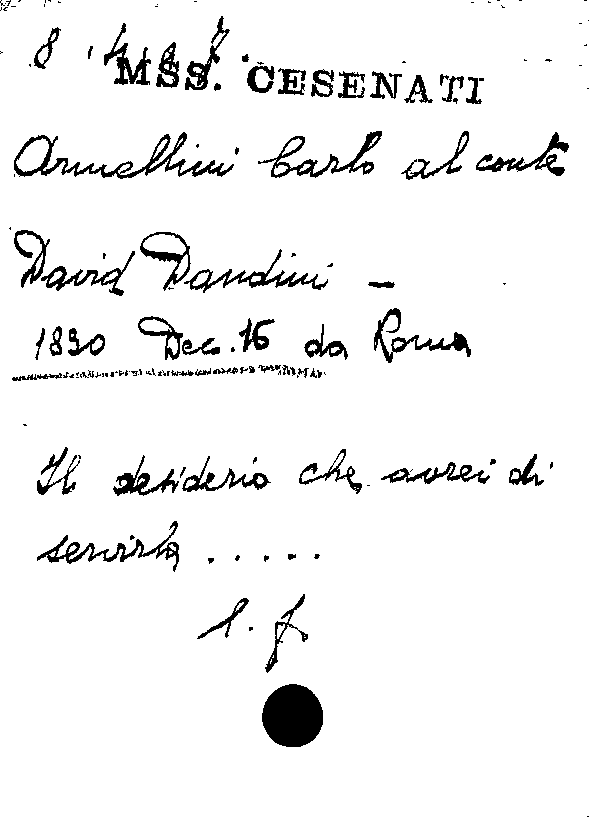 MSS. CESENATI
Armellini Carlo al conte
David Dandini —
1830 Dec. 16 da Roma
Il desiderio che avrei di
servirla . . . . .
l. f.